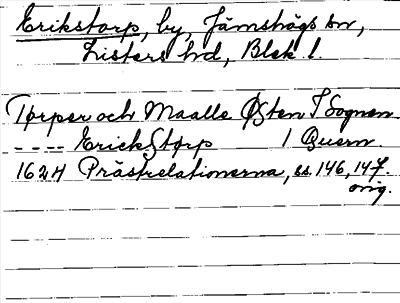 Erikstorp, by, Jämshögs sn,
Listers hd, Blek l.
Torper och Maalle Østen I Sognen
---- Erickstorp 1 Quern.
1624 Prästrelationerna, ss. 146, 147.
orig.